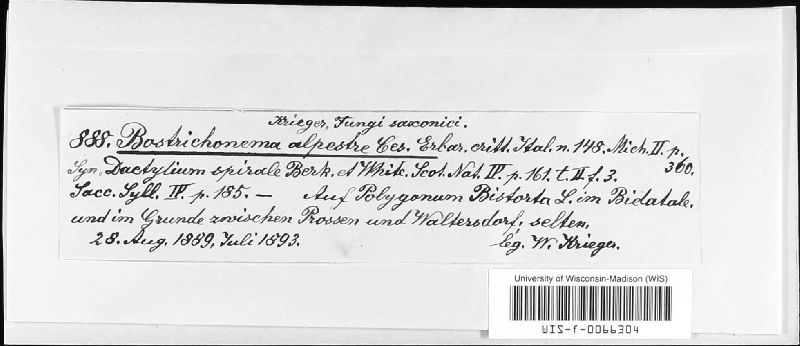 Krieger, Fungi saxonici.
888. Bostrichonema alpestre Ces. Erbar. critt. Ital. n. 148. Mich. II. p. 360.
Syn. Dactylium spirale Berk. et White. Scot. Nat. IV. p. 161. t. II. f. 3.
Sacc. Syll. IV. p. 185. — Auf Polygonum Bistorta L. im Bielatale.
und im Grunde zwischen Prossen und Waltersdorf, selten.
28. Aug. 1889, Juli 1893. leg. W. Krieger.
University of Wisconsin-Madison (WIS)
WIS-f-0066304